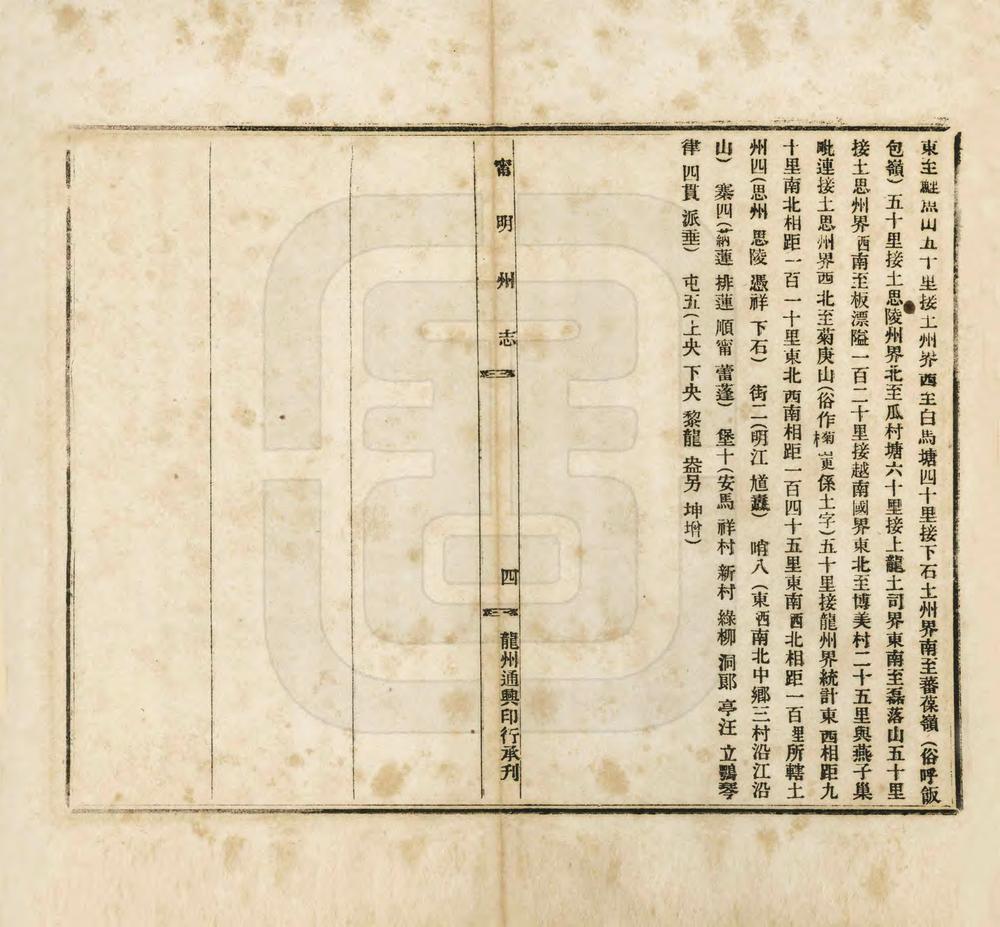 東至黱㶵山五十里接土州界西至白馬塘四十里接下石土州界南至蕃葆嶺（俗呼飯
包嶺）五十里接土思陵州界北至瓜村塘六十里接上龍土司界東南至磊落山五十里
接土思州界西南至板漂隘一百二十里接越南國界東北至博美村二十五里與燕子巢
毗連接土思州界西北至菊庚山（俗作係土字）五十里接龍州界統計東西相距九
十里南北相距一百一十里東北西南相距一百四十五里東南西北相距一百里所轄土
州四（思州 思陵 憑祥 下石） 街二（明江 馗纛） 哨八（東西南北中鄉三村沿江沿
山） 寨四（蒳蓮 排蓮 順甯 蕾蓬） 堡十（安馬 祥村 新村 綠柳 洞郞 亭汪 立鸚琴
律 四貫 派垂） 屯五（上央 下央 黎龍 盎另 坤增）
甯明州志 四 龍州通興印行承刊